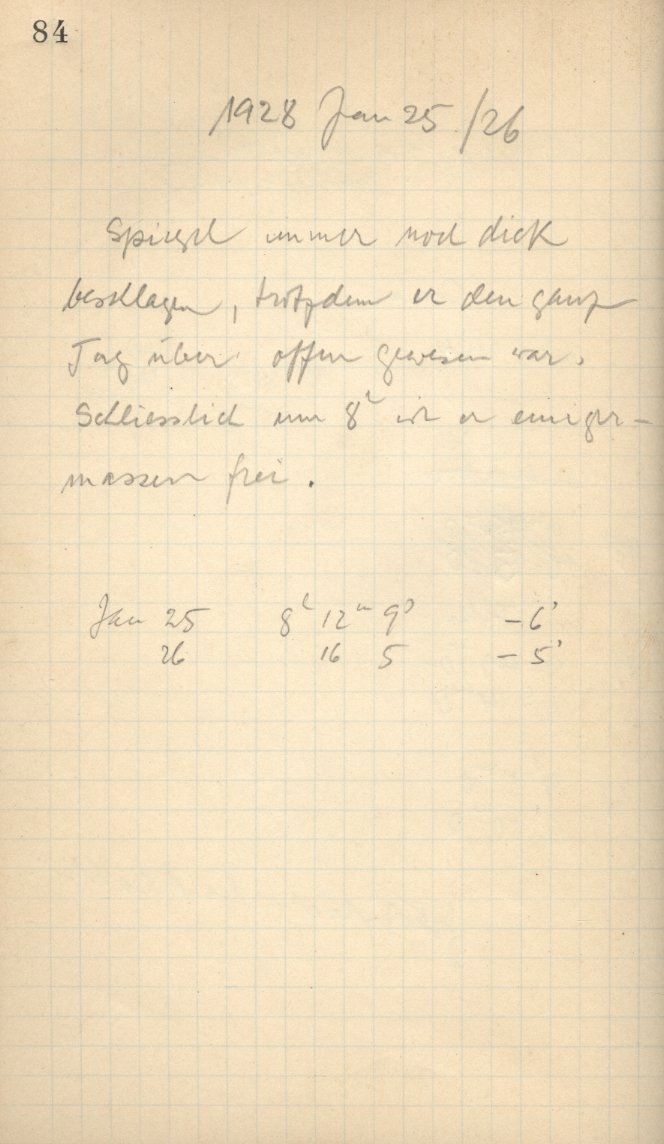 84
1928 Jan 25/26
Spiegel immer noch dick
beschlagen, trotzdem er den ganz
Tag über offen gewesen war.
Schliesslich um 8ʰ ist er einiger-
massen frei.
Jan 25 8ʰ 12ᵐ 9ˢ -6'
26 16 5 -5'